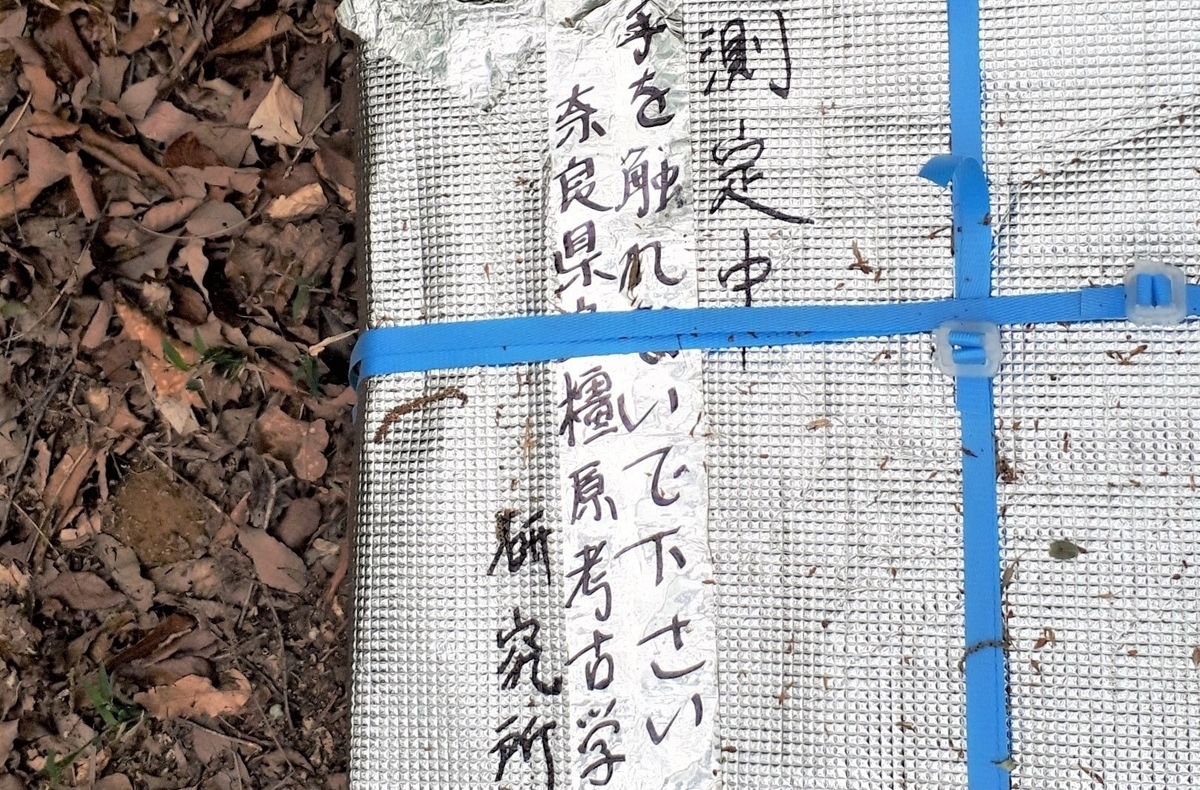 測定中
手を触れないで下さい
奈良県立橿原考古学
研究所